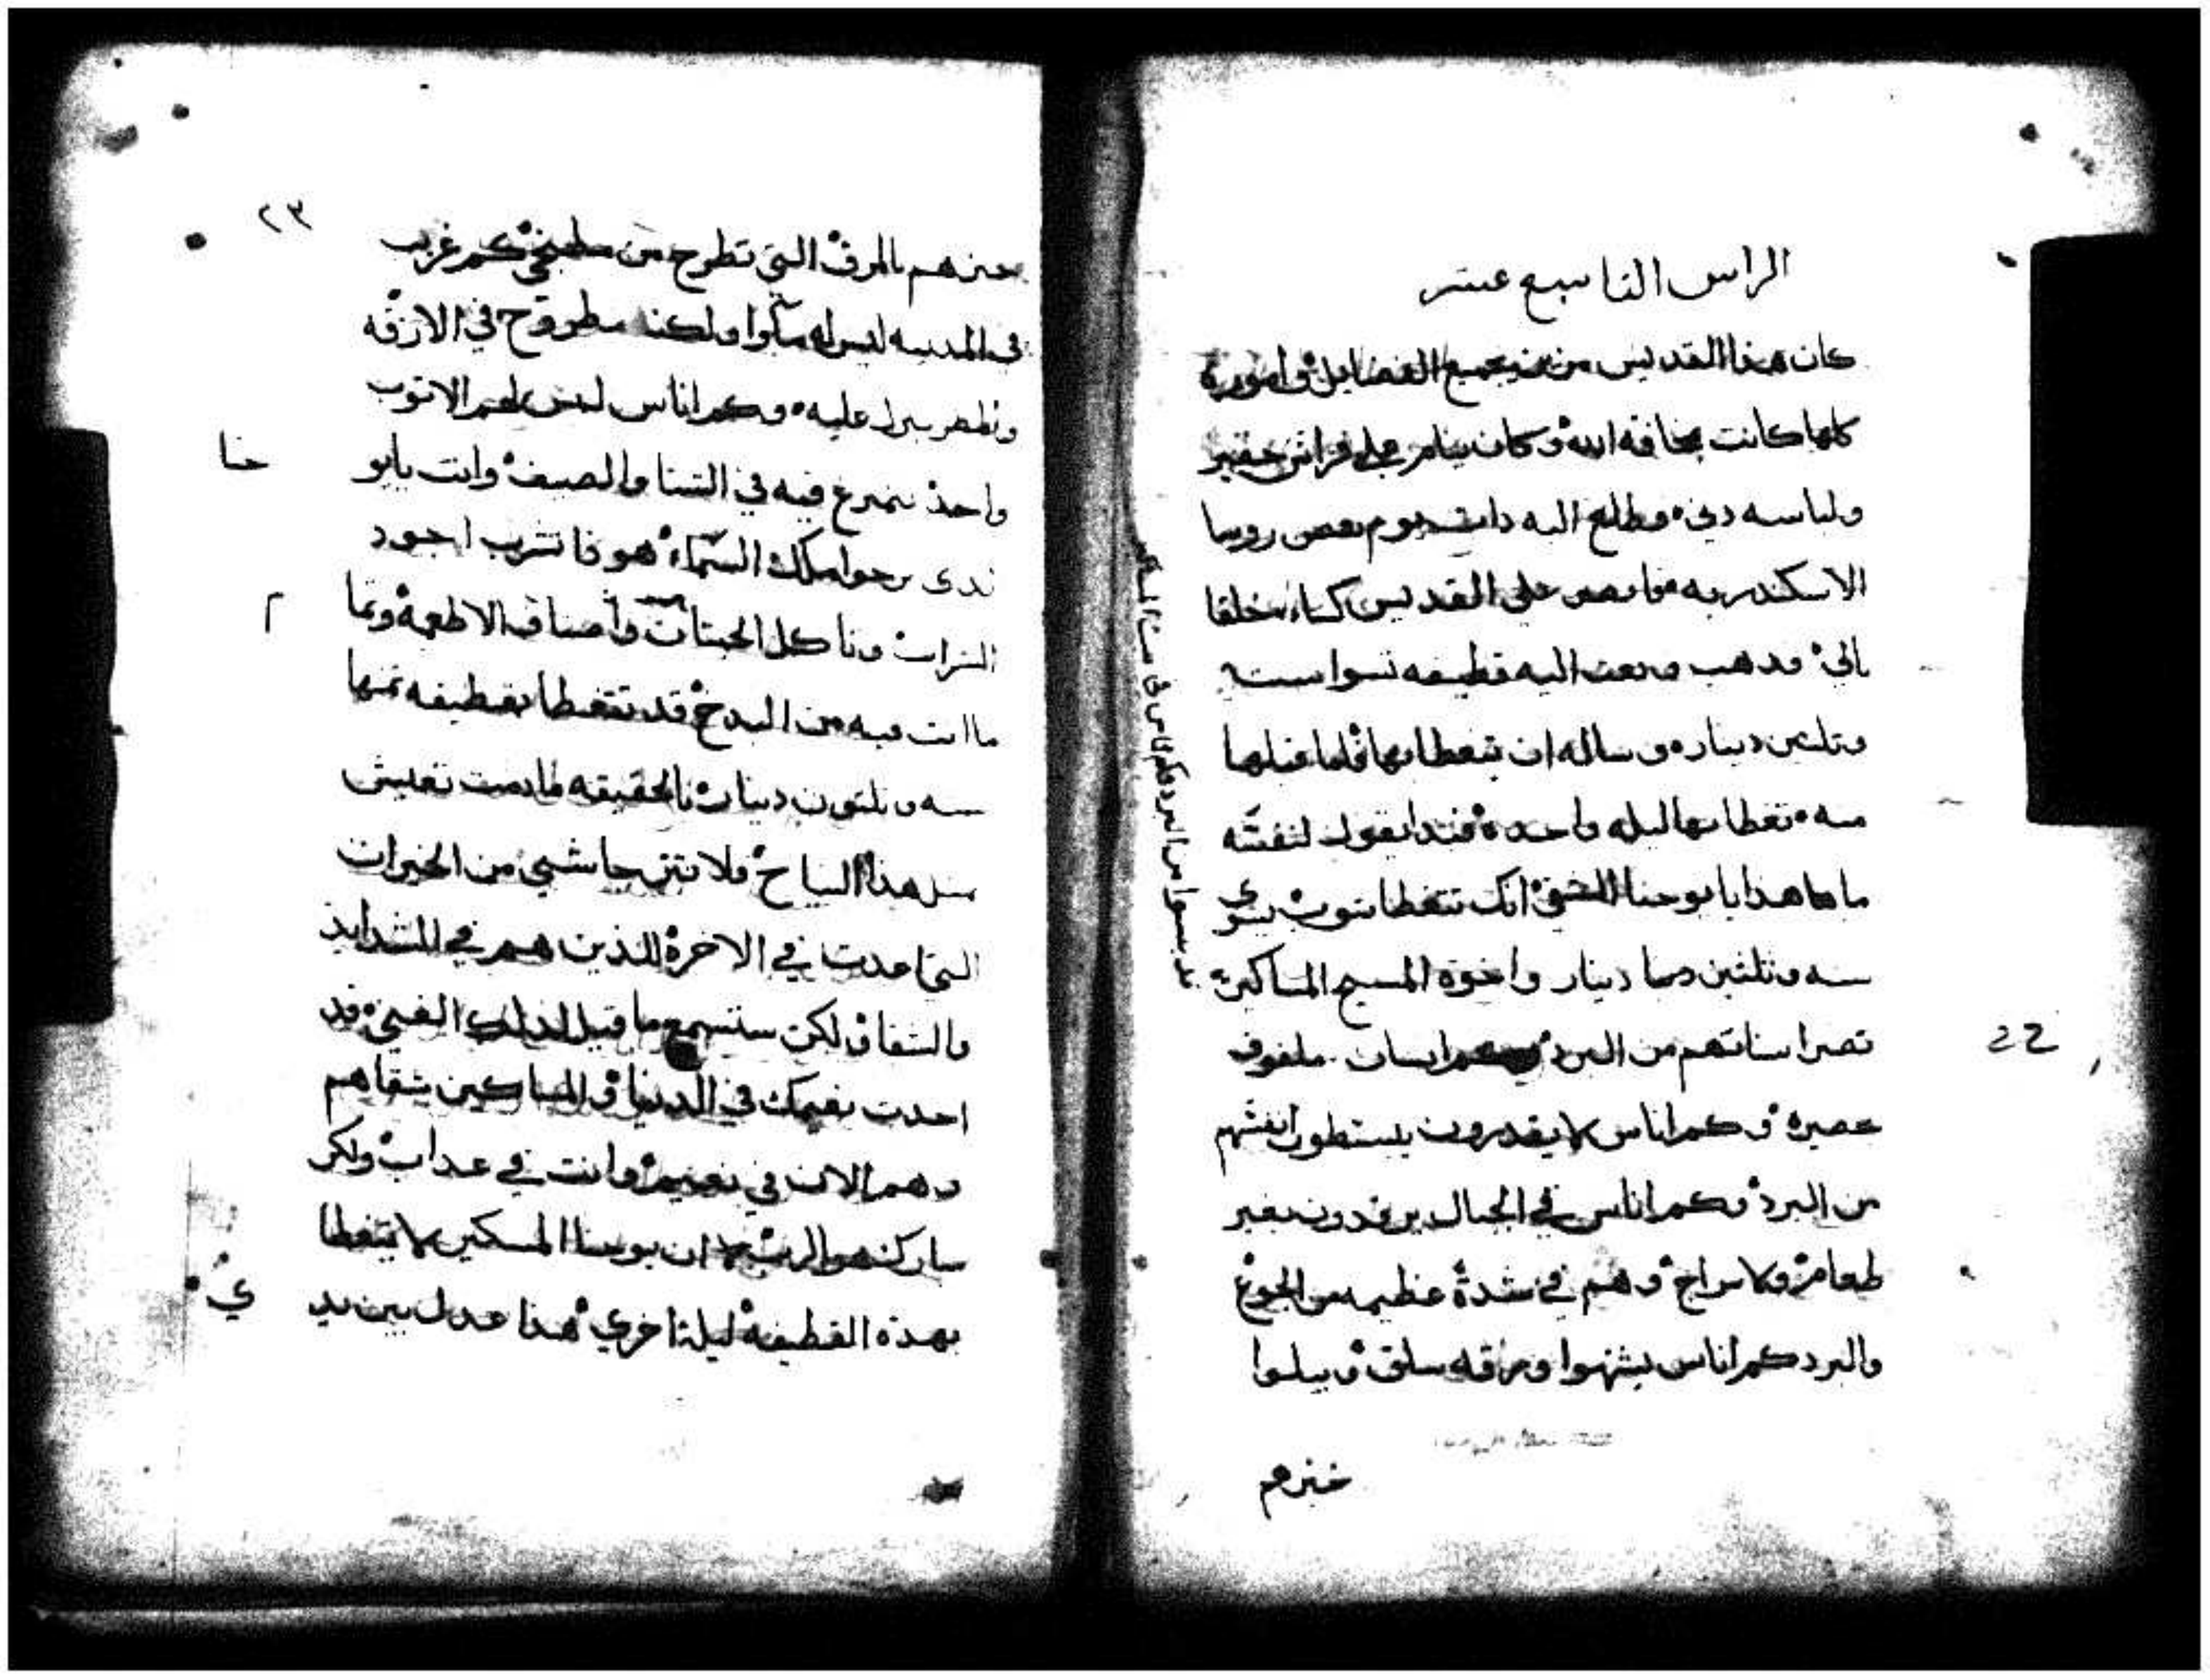 الراس التاسع عشر
كان هذا القديس مزين بجميع الفضايل وامورة
كلها كانت بمخافة الله وكان ينام على فراش حقير
ولباسه دني وطلع اليه دات يوم بعض روسا
الاسكندريه على القديس كساء خلقا
بالي فدهب وبعت اليه قطيفه تسوا سته
وتلتين دينار وساله ان يتغطا بها فلما قبلها
منه تغطا بها ليله واحدة فبدا يقول لنفسه
ما هاهدا يا يوحنا الشقي انك تتغطا بتوب يسوى
سته وتلتين دينار واخوة المسيح المساكين
تصر اسنانهم من البرد انسان ملفوف
حصيرة وكم اناس لا يقدرون يبسطون انفسهم
من البرد وكم اناس في الجبال يرقدون بغير
طعام ولا سراج وهم في شدة عظيمه من الجوع
والبرد كم اناس يشتهوا ورقه سلق ويبلوا
خبزهم
22
من البرد وكم اناس في
٢٣
خبزهم بالمرق التي تطرح من مطبخي كم غريب
في المدينه ليس له ماوا ولكنه مطروح في الازقه
والمطر ينزل عليه وكم اناس ليس لهم الا توب
واحد يتمرغ فيه في الشتا والصيف وانت يايو
حنا
تدى ترجوا ملك السماء هودا تشرب اجود
الشراب وتاكل الحيتان واصناف الاطعمة وتما
م
ما انت فيه من البدخ قد تتغطا بقطيفه تمنها
سته وتلتون دينار بالحقيقه مادمت تعيش
مثل هذا النياح فلا تترجا شي من الخيرات
التي اعدت في الاخرة للذين هم في الشدايد
والشقا ولكن ستسمع ما قيل لذلك الغني قد
اخدت نعيمك في الدنيا والمساكين شقاهم
وهم الان في نعيم وانت في عداب ولكن
مبارك هو الرب ان يوحنا المسكين لا يتغطا
بهذه القطيفة ليلة اخري هذا عدل بين يد
ي